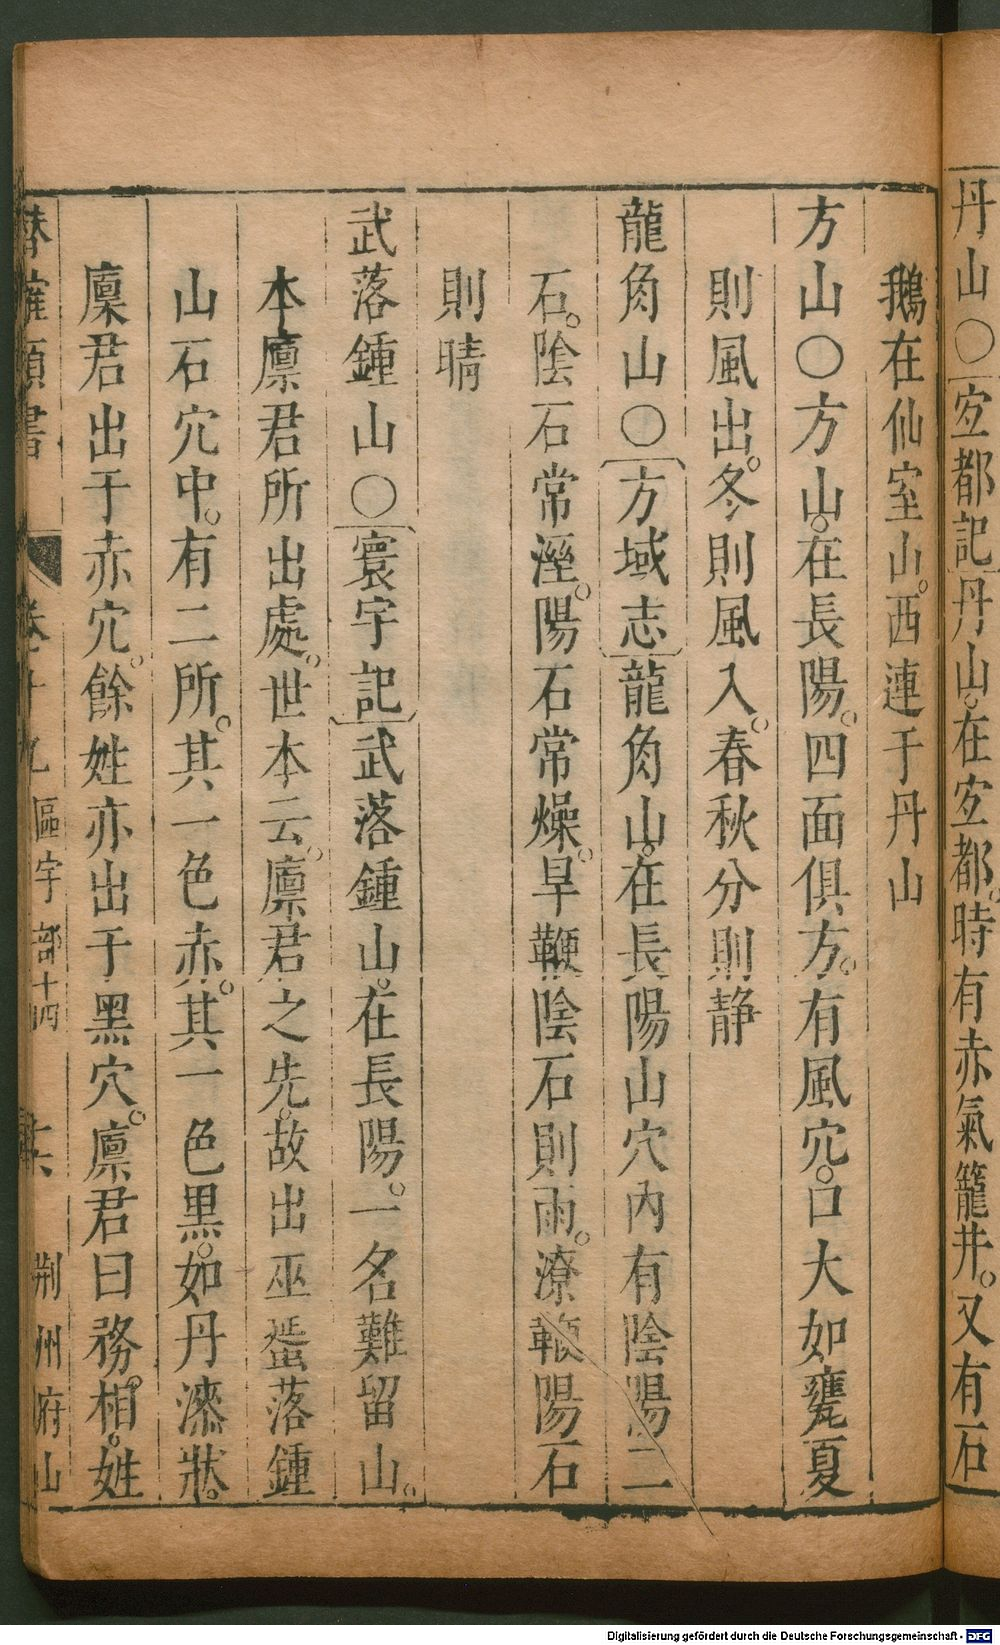 丹山○宜都記丹山。在宜都。時有赤氣籠井。又有石
鵝在仙室山。西連于丹山
方山○方山。在長陽。四面俱方。有風穴。口大如甕夏
則風出。冬則風入。春秋分則静
龍角山○方域志龍角山。在長陽山穴內有陰陽二
石。陰石常溼。陽石常燥。旱鞭陰石則雨。潦鞭陽石
則晴
武落鍾山○寰宇記武落鍾山。在長陽。一名難留山。
本廪君所出處。世本云。廪君之先。故出巫蜑落鍾
山石穴中。有二所。其一色赤。其一色黒。如丹漆狀。
廪君出于赤穴。餘姓亦出于黑穴。廪君曰務。相。姓
類書 卷十九 區宇部十四 荆州府山
Digitalisierung gefördert durch die Deutsche Forschungsgemeinschaft - DFG